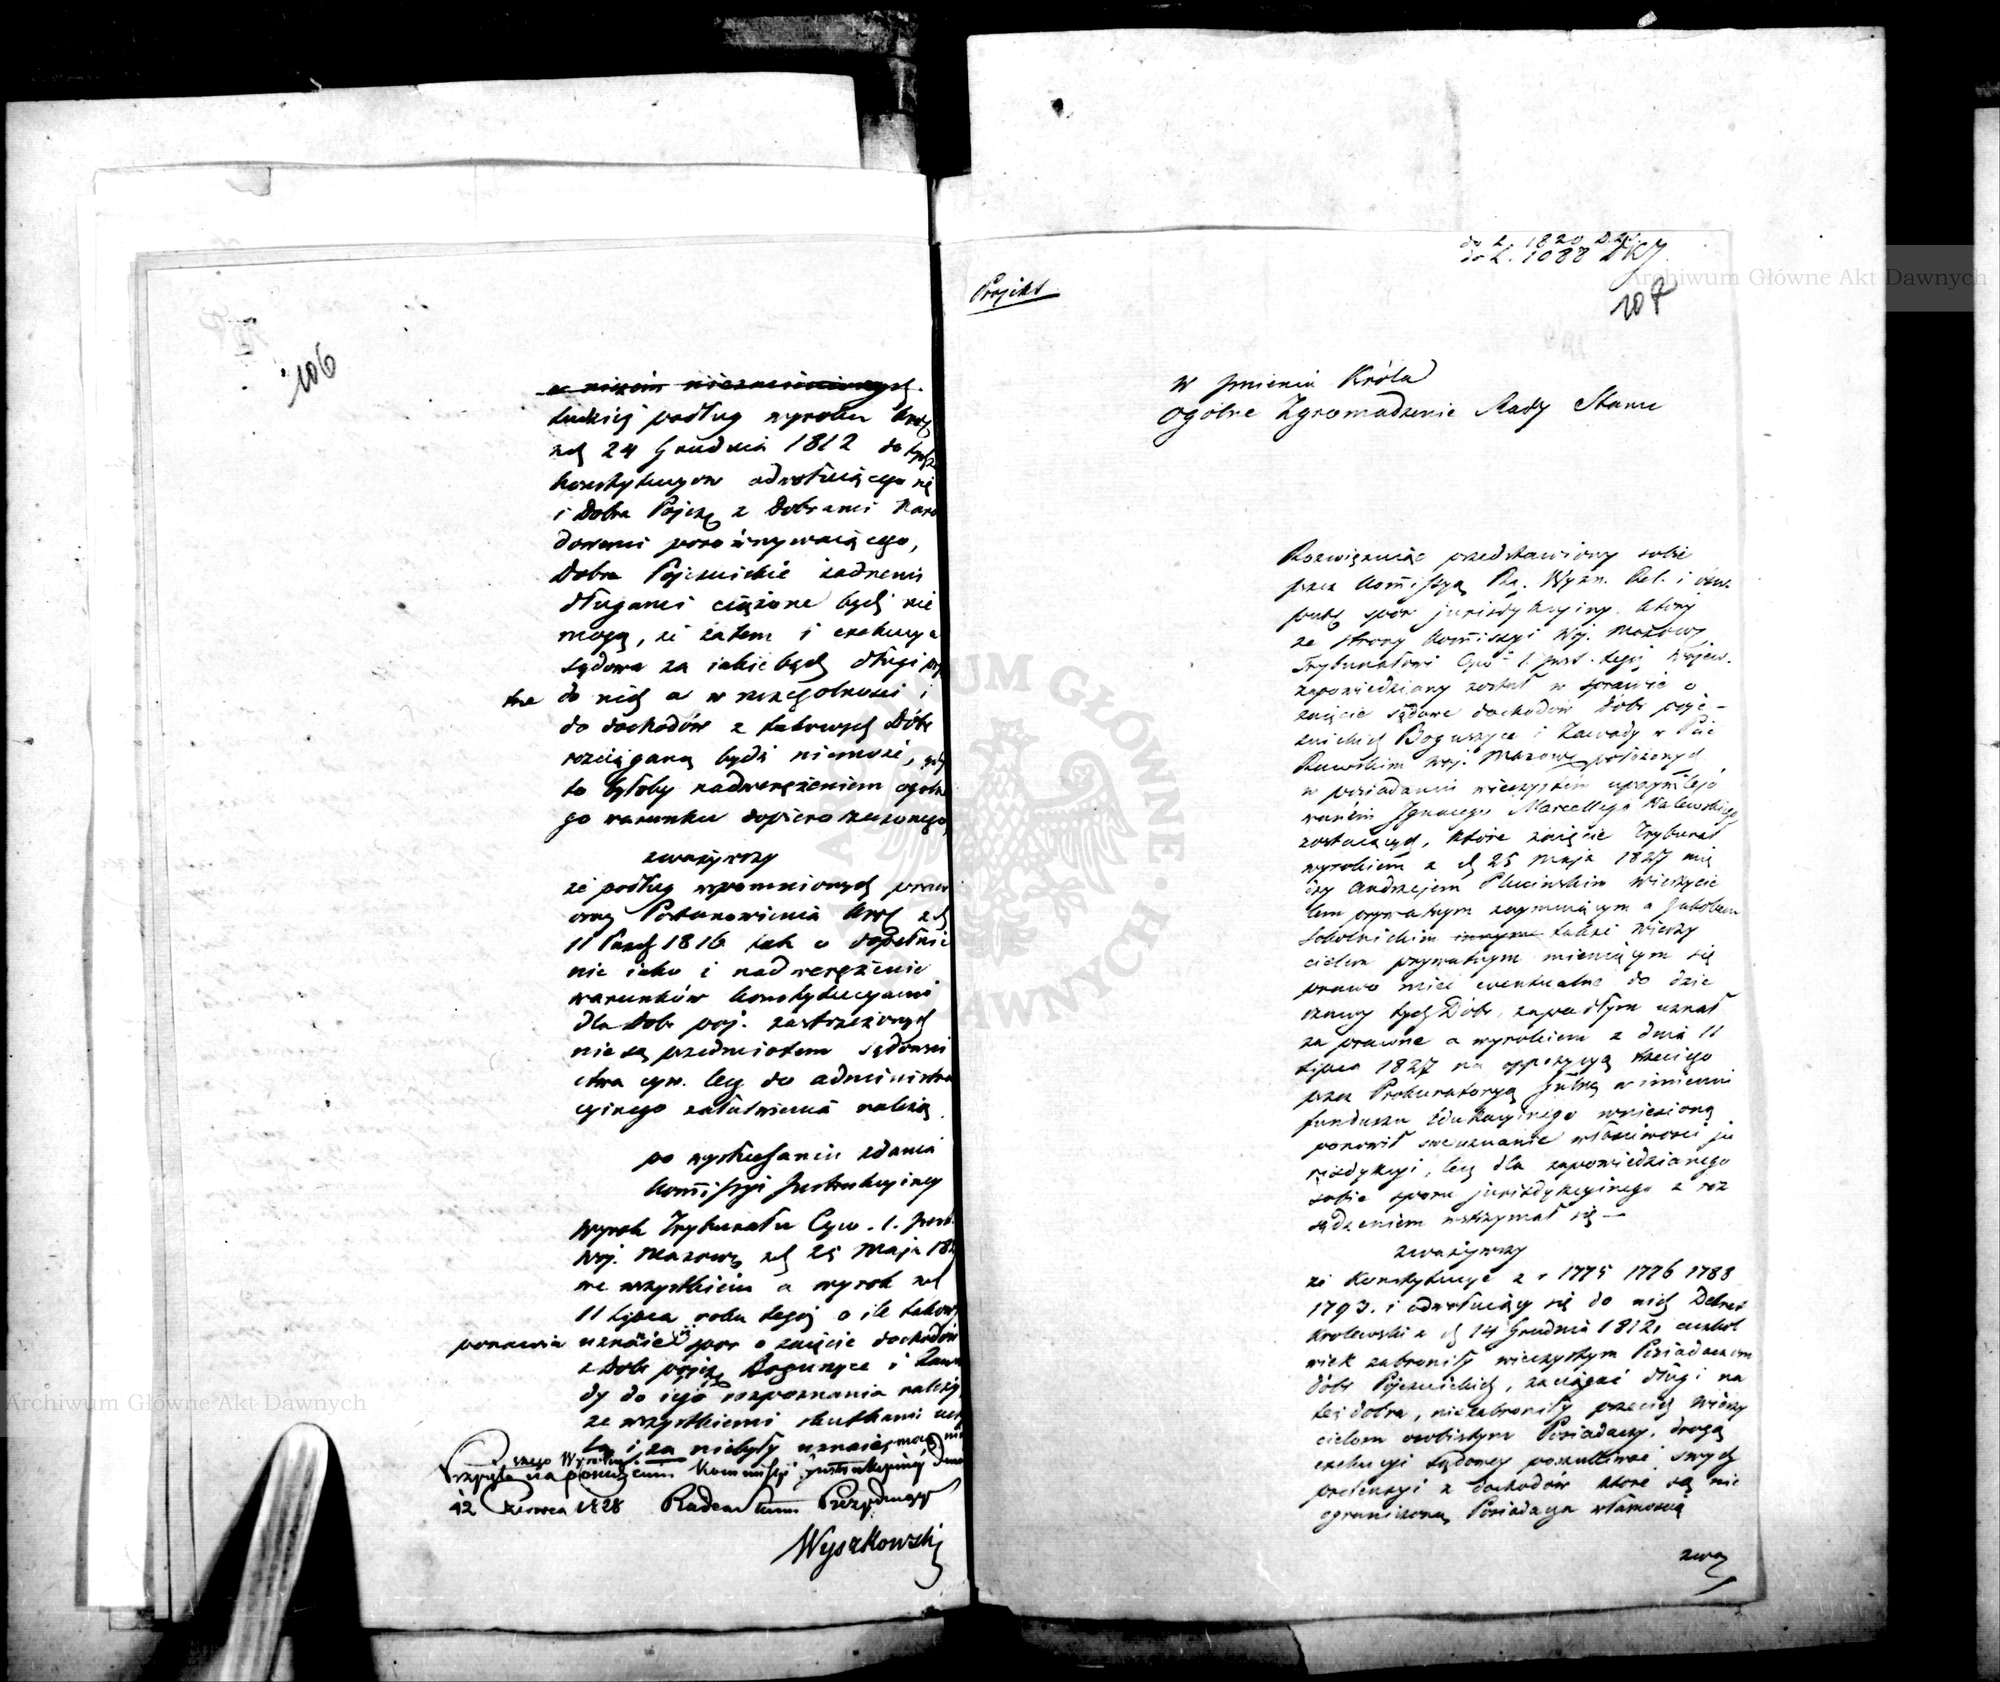 106
tudzież podług wyroku Król
z d. 24 Grudnia 1812 do tychże
konstytucyow odwołującego się
i Dobra Pojez. z Dobrami Naro
dowemi porównywającego,
Dobra Pojezuickie żadnemi
długami ciążone bydź nie
mogą, że zatem i exekucya
sądowa za jakiebądź długi
do nich a w szczególności i
do dochodów z takowych Dóbr
rozciąganą bydź niemoże, gdyż
to byłoby nadwerężeniem ogólne
go warunku dopiero rzeczonego,
zważywszy
że podług wspomnionych praw
oraz Postanowienia Król z d.
11 Paźd 1816 tak o dopełnie
nie jako i nadwerężenie
warunków konstytucyami
dla Dobr poj. zastrzeżonych
nie są przedmiotem sądowni
ctwa cyw. lecz do administra
cyjnego załatwienia należą.
po wysłuchaniu zdania
Kommissyi Instrukcyiney
Wyrok Trybunału Cyw. 1. Inst.
Woj. Mazow. z d. 25 Maja 182
we wszystkiem a wyrok z d.
11 Lipca roku tegoż o ile takowy
ponawia uznanie spor o zajęcie dochodów
z Dobr pojez. Boguszyce i Zawa
dy do jego rozpoznania należy
ze wszystkiemi skutkami
za niebyły uznaie
Przyięto na posiedzeniu Kommissyi Instrukcyiney Dnia
12 Czerwca 1828 Radca Stanu Prezyduiący
Wyszkowski
do L. 1820 D.
do L. 1088 DKJ.
107
Projekt
W Jmieniu Króla
Ogólne Zgromadzenie Rady Stanu
Rozwiązuiąc przedstawiony sobie
przez Kommissyą Rz. Wyzn. Rel. i Ośw.
publ. spór jurisdykcyiny, który
ze strony Kommissyi Woj. Mazow.
Trybunałowi Cyw. 1. Inst. tegoż Wojew.
zapowiedziany został w sprawie o
zajęcie sądowe dochodów dóbr poje-
zuickich Boguszyce i Zawady w Pcie
Rawskim Woj. Mazow. położonych
w posiadaniu wieczystém uprzywilejo
waném Ignacego Marcellego Walewskiego
zostaiących, które zajęcie Trybunał
wyrokiem z d. 25 Maja 1827 mię
dzy Andrzejem Plucinskim wierzycie
lem prywatnym zajmuiącym a Jakobem
Sokolnickim także wierzy
cielem prywatnym mieniącym się
prawo mieć eventualne do dzie
rżawy tych Dóbr, zapadłym uznał
za prawne a wyrokiem z dnia 11
Lipca 1827 na oppozycyą trzeciego
przez Prokuratoryą Jlną w imieniu
funduszu Edukacyinego wniesioną
ponowił swe uznanie właściwości ju
risdykcyi, lecz dla zapowiedzianego
sobie sporu jurisdykcyinego z roz
sądzeniem wstrzymał się —
zważywszy
że Konstytucye z r. 1775 1776 1788
1793. i odwołuiący się do nich Dekret
Krolewski z d. 24 Grudnia 1812, aczkol
wiek zabroniły wieczystym Posiadaczom
dóbr Pojezuickich, zaciągać długi na
też dobra, niezabroniły przecież wierzy
cielom osobistym Posiadaczy, drogą
exekucyi sądowey poszukiwać swych
pretensyi z dochodów które są nie
ograniczoną Posiadacza własnością
zwa